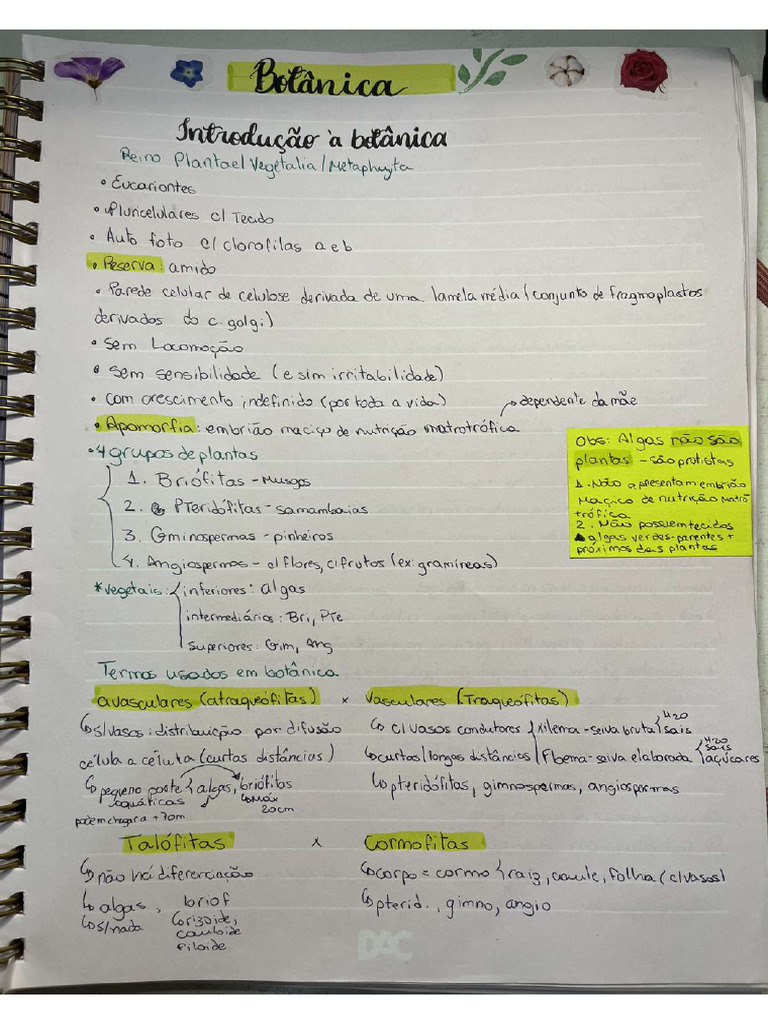 Botânica
Introdução à botânica
Reino Plantae/Vegetalia/Metaphyta
• Eucariontes
• Pluricelulares c/ Tecido
• Auto foto c/ clorofilas a e b
• Reserva: amido
• Parede celular de celulose derivada de uma lamela média (conjunto de fragmoplastos
derivados do c. golgi)
• Sem Locomoção
• Sem sensibilidade (e sim irritabilidade)
• com crescimento indefinido (por toda a vida)
→ dependente da mãe
• Apomorfia: embrião maciço de nutrição matrotrófica
• 4 grupos de plantas
1. Briófitas - Musgos
2. Pteridófitas - samambaias
3. Gminospermas - pinheiros
4. Angiospermas - c/ flores, c/ frutos (ex: gramíneas)
Obs: Algas não são
plantas - são protistas
1. Não apresentam embrião
maciço de nutrição matro
trófica
2. Não possuem tecidos
algas verdes - parentes +
próximos das plantas
* vegetais: inferiores: algas
intermediários: Bri, Pte
Superiores: Gim, Ang
Termos usados em botânica
avasculares (atraqueófitas) x Vasculares (Traqueófitas)
↳ s/vasos: distribuição por difusão
célula a célula (curtas distâncias)
↳ pequeno porte { algas, briófitas
aquáticas ↳ máx
20cm
podem chegar a +70m
↳ c/ vasos condutores { xilema - seiva bruta { H2O
sais
↳ curtas/longas distâncias | Floema - seiva elaborada { H2O
sais
açúcares
↳ pteridófitas, gimnospermas, angiospermas
Talófitas x Cormofitas
↳ não há diferenciação
↳ algas, briof
↳ s/nada ↳ rizoide,
cauloide
filoide
↳ corpo = cormo { raiz, caule, folha (c/vasos)
↳ pterid., gimno, angio
DAC